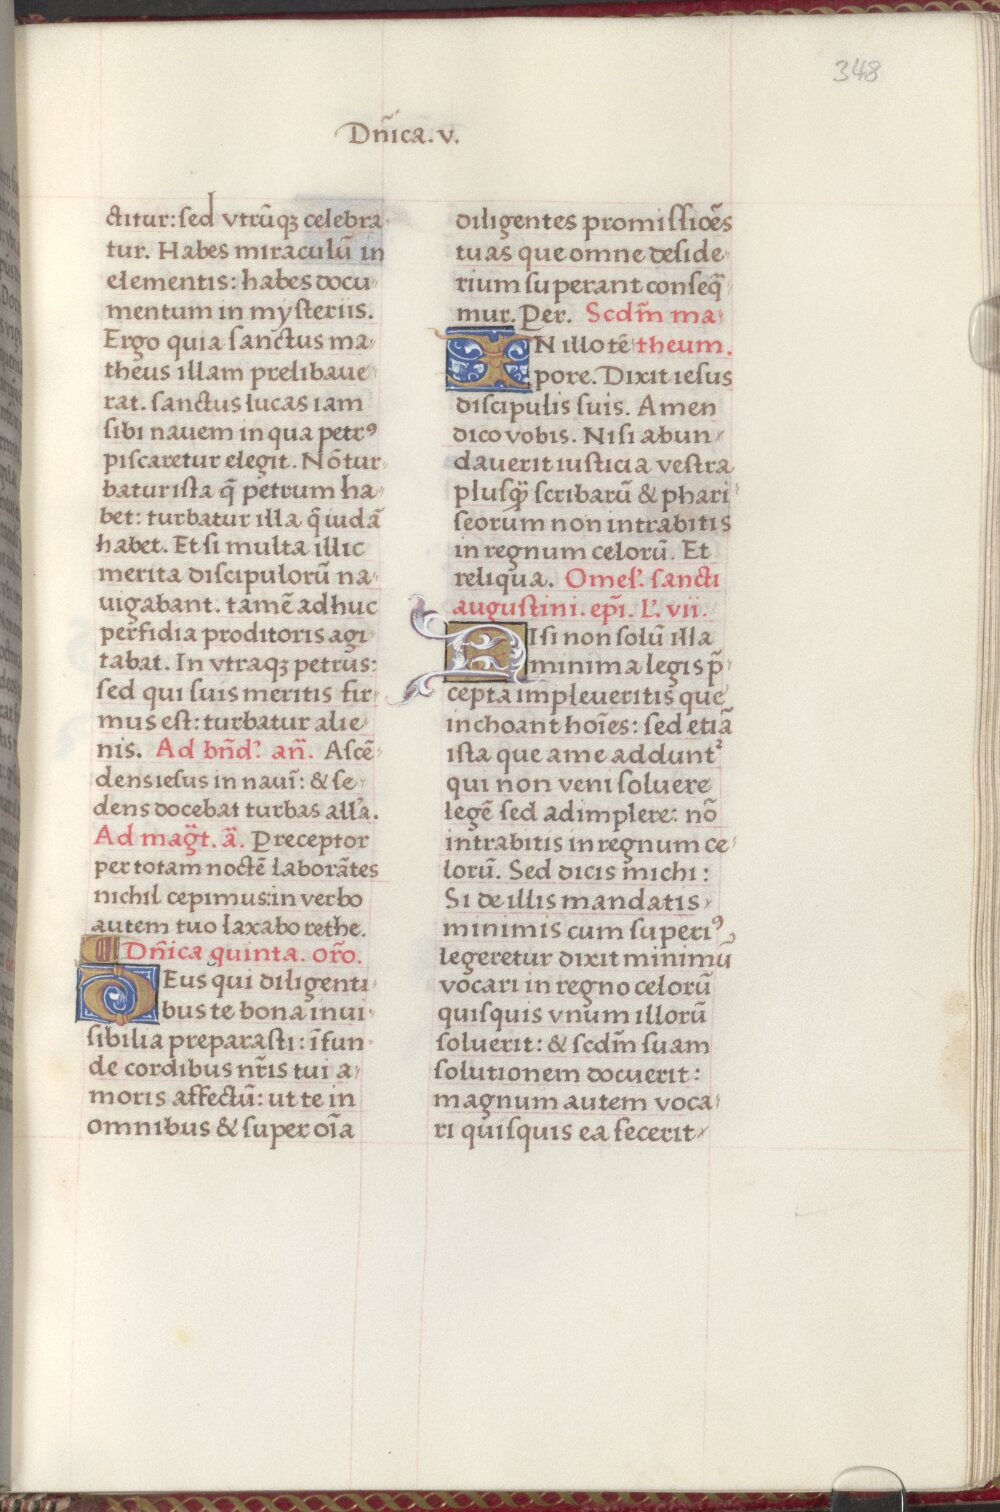 348
Dn̄ica. v.
ctitur: sed vtrūqꝫ celebra
tur. Habes miraculū in
elementis: habes docu
mentum in mysteriis.
Ergo quia sanctus ma
theus illam prelibaue
rat. sanctus lucas iam
sibi nauem in qua petrꝰ
piscaretur elegit. Nō tur
batur ista q̄ petrum ha
bet: turbatur illa q̄ iudā
habet. Et si multa illic
merita discipulorū na
uigabant. tamē adhuc
perfidia proditoris agi
tabat. In vtraqꝫ petrus:
sed qui suis meritis fir
mus est: turbatur alie
nis. Ad bn̄d'. an̄. Ascē
dens iesus in nauī: & se
dens docebat turbas all'a.
Ad maḡt. ā. Preceptor
per totam noctē laborātes
nichil cepimus: in verbo
autem tuo laxabo rethe.
Dn̄ica quinta. or̄o.
Deus qui diligenti
bus te bona inui
sibilia preparasti: īfun
de cordibus nr̄is tui a
moris affectū: ut te in
omnibus & super oīa
diligentes promissiōes
tuas que omne deside
rium superant conseq̄
mur. Per. Scdm̄ ma
IN illo tē theum.
pore. Dixit iesus
discipulis suis. Amen
dico vobis. Nisi abun
dauerit iusticia vestra
plusq̄ scribarū & phari
seorum non intrabitis
in regnum celorū. Et
reliqua. Omel'. sancti
augustini. ep̄i. L'. vii.
NIsi non solū illa
minima legis p̄
cepta impleueritis que
inchoant hoīes: sed etiā
ista que a me addunt᷑
qui non veni soluere
legē sed adimplere: nō
intrabitis in regnum ce
lorū. Sed dicis michi:
Si de illis mandatis
minimis cum superiꝰ
legeretur dixit minimū
vocari in regno celorū
quisquis vnum illorū
soluerit: & scdm̄ suam
solutionem docuerit:
magnum autem voca
ri quisquis ea fecerit